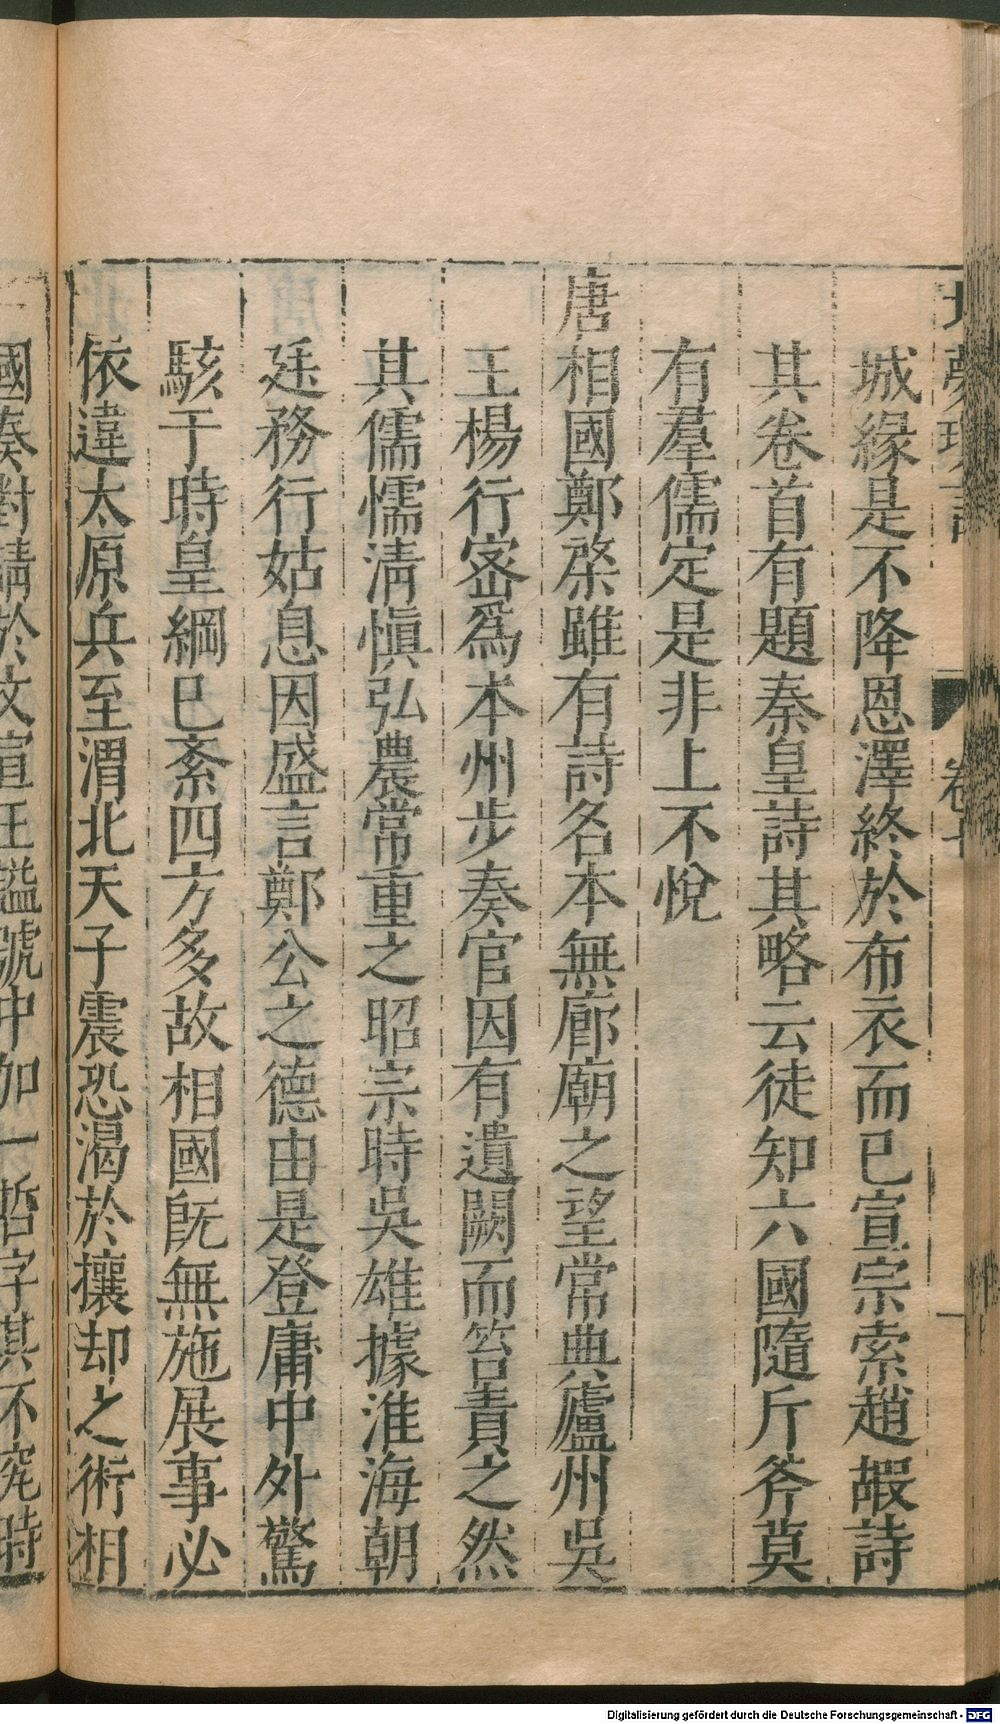 城緣是不降恩澤終於布衣而已宣宗索趙嘏詩
其卷首有題秦皇詩其略云徒知六國隨斤斧莫
有羣儒定是非上不悅
唐相國鄭綮雖有詩名本無廊廟之望常典廬州吳
王楊行密爲本州步奏官因有遺闕而笞責之然
其儒懦淸愼弘農常重之昭宗時吳雄據淮海朝
廷務行姑息因盛言鄭公之德由是登庸中外驚
駭于時皇綱已紊四方多故相國旣無施展事必
依違太原兵至渭北天子震恐渴於攘却之術相
國奏對請於文宣王謚號中加一哲字其不究時
Digitalisierung gefördert durch die Deutsche Forschungsgemeinschaft - DFG